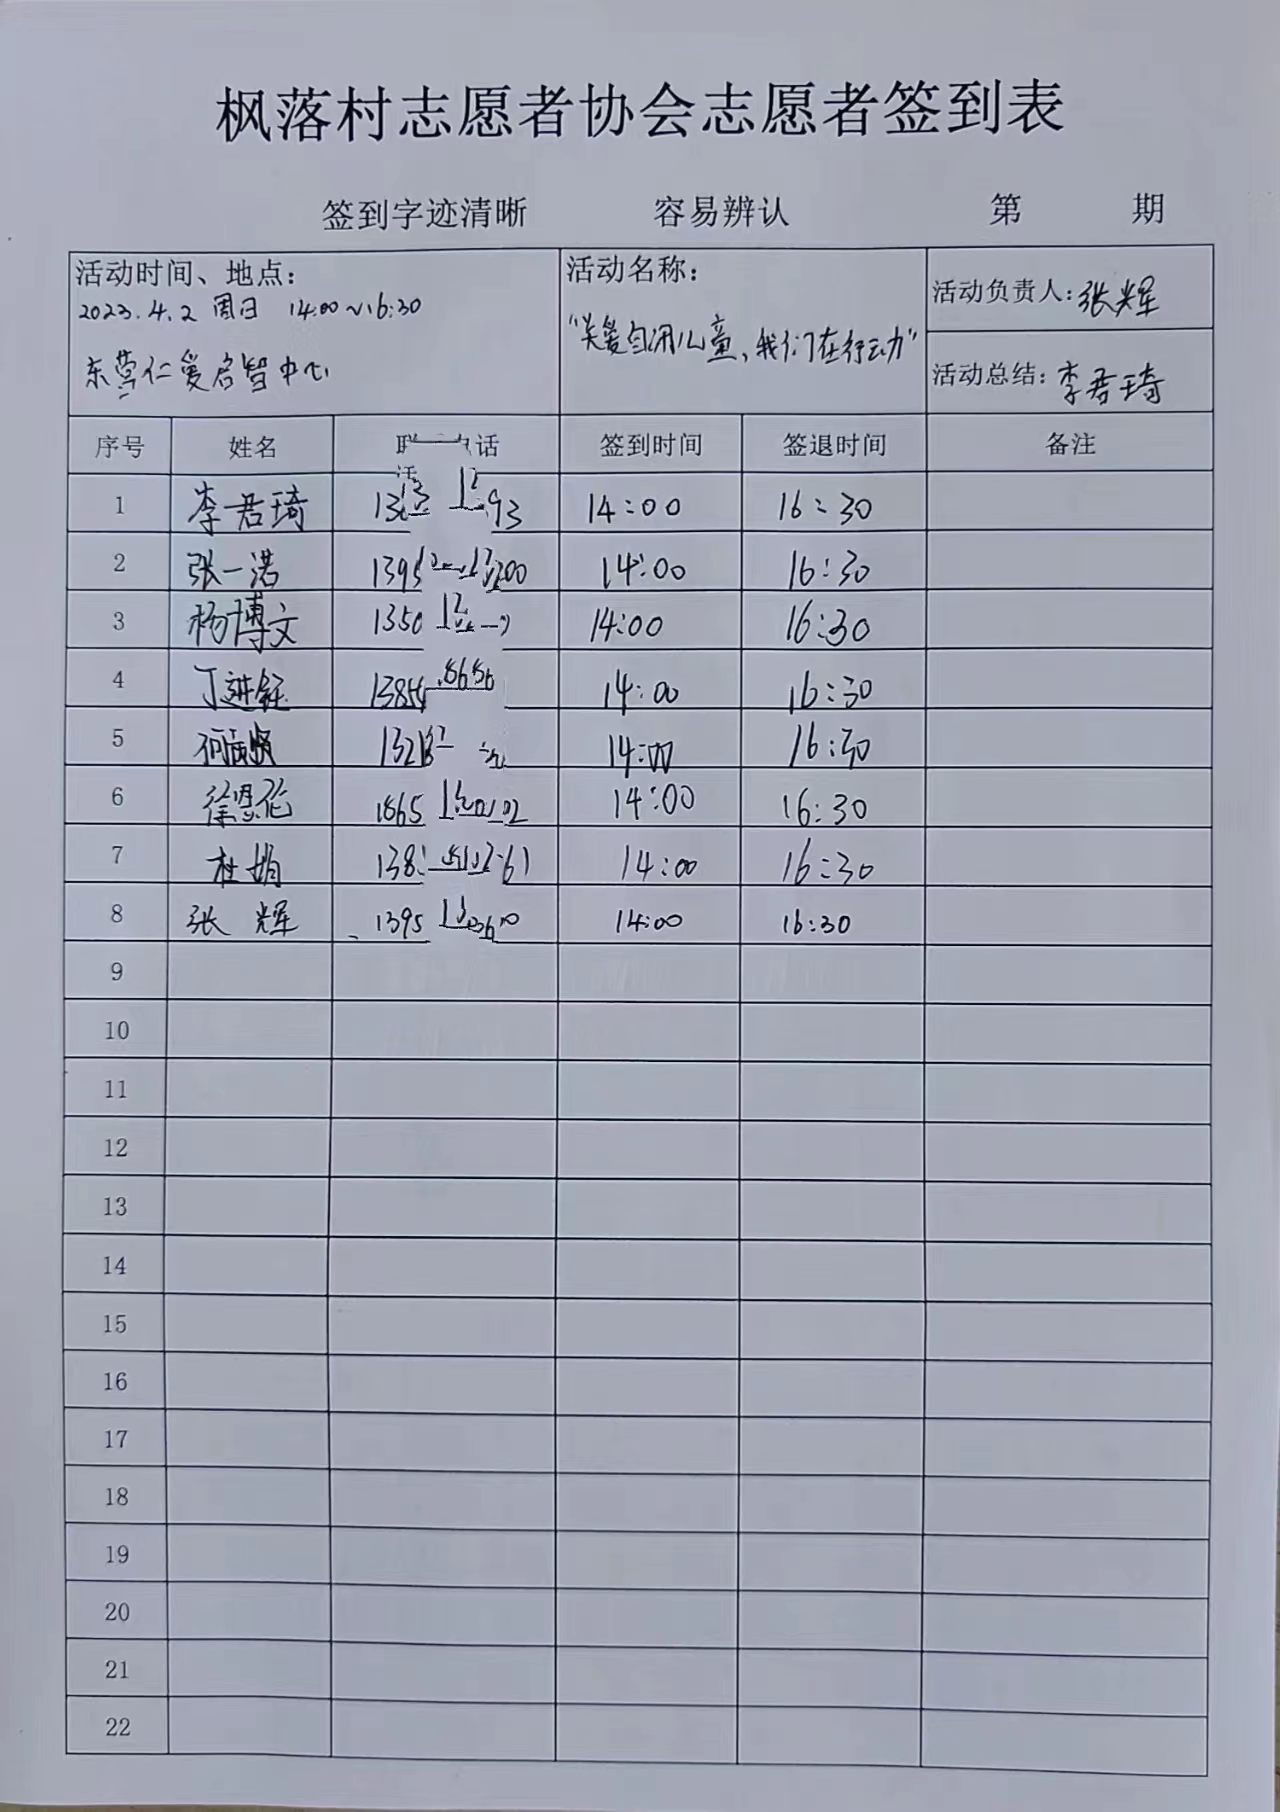 枫落村志愿者协会志愿者签到表
签到字迹清晰 容易辨认 第 期
活动时间、地点：
2023.4.2 周日 14:00~16:30
东营仁爱启智中心
活动名称：
"关爱自闭儿童、我们在行动"
活动负责人：张辉
活动总结：李君琦
序号 姓名 话 签到时间 签退时间 备注
1 李君琦 14:00 16:30
2 张一浩 14:00 16:30
3 杨博文 1350 14:00 16:30
4 丁进 14:00 16:30
5 14:00 16:30
6 徐恩伦 1865 14:00 16:30
7 杜娟 14:00 16:30
8 张辉 1395 14:00 16:30
9
10
11
12
13
14
15
16
17
18
19
20
21
22